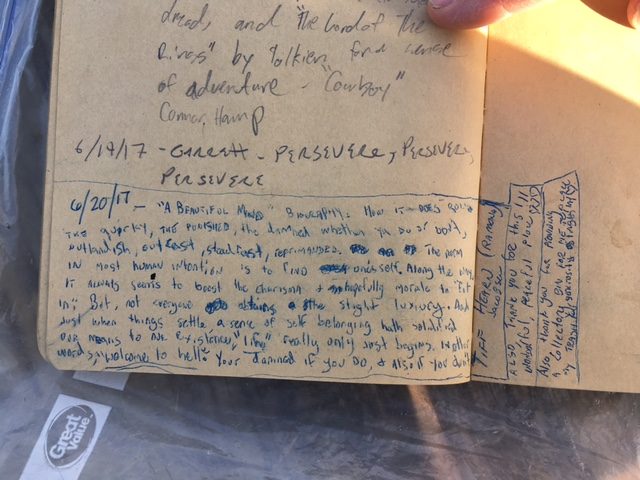 dread, and "the Lord of the
Rings" by Tolkien for a sense
of adventure - "Cowboy"
Connor, Hamp
6/19/17 - GARRETT - PERSEVERE, PERSEVERE,
PERSEVERE
6/20/17 - "A BEAUTIFUL MIND" BIOGRAPHY. How it DOES
THE quirky, THE PUNISHED, the damned whether you do or don't,
outlandish, outcast, steadfast, reprimanded. The norm
IN most human intention is to FIND oneself. Along the way
it always seems to boost the charisma & hopefully morale to "Fit
in". But, not everyone obtains the slight luxury. And
Just when things settle a sense of self belonging hath solidified
our means to an existence, "Life" Really only just begins. In other
words, "welcome to hell" Your damned if you do, & also if you don't
TIFF HENRY (Ramsay)
Jacobsen
ALSO, Thank you for this
wonderful, peaceful place
Also, thank you for
a collection
Great
Value